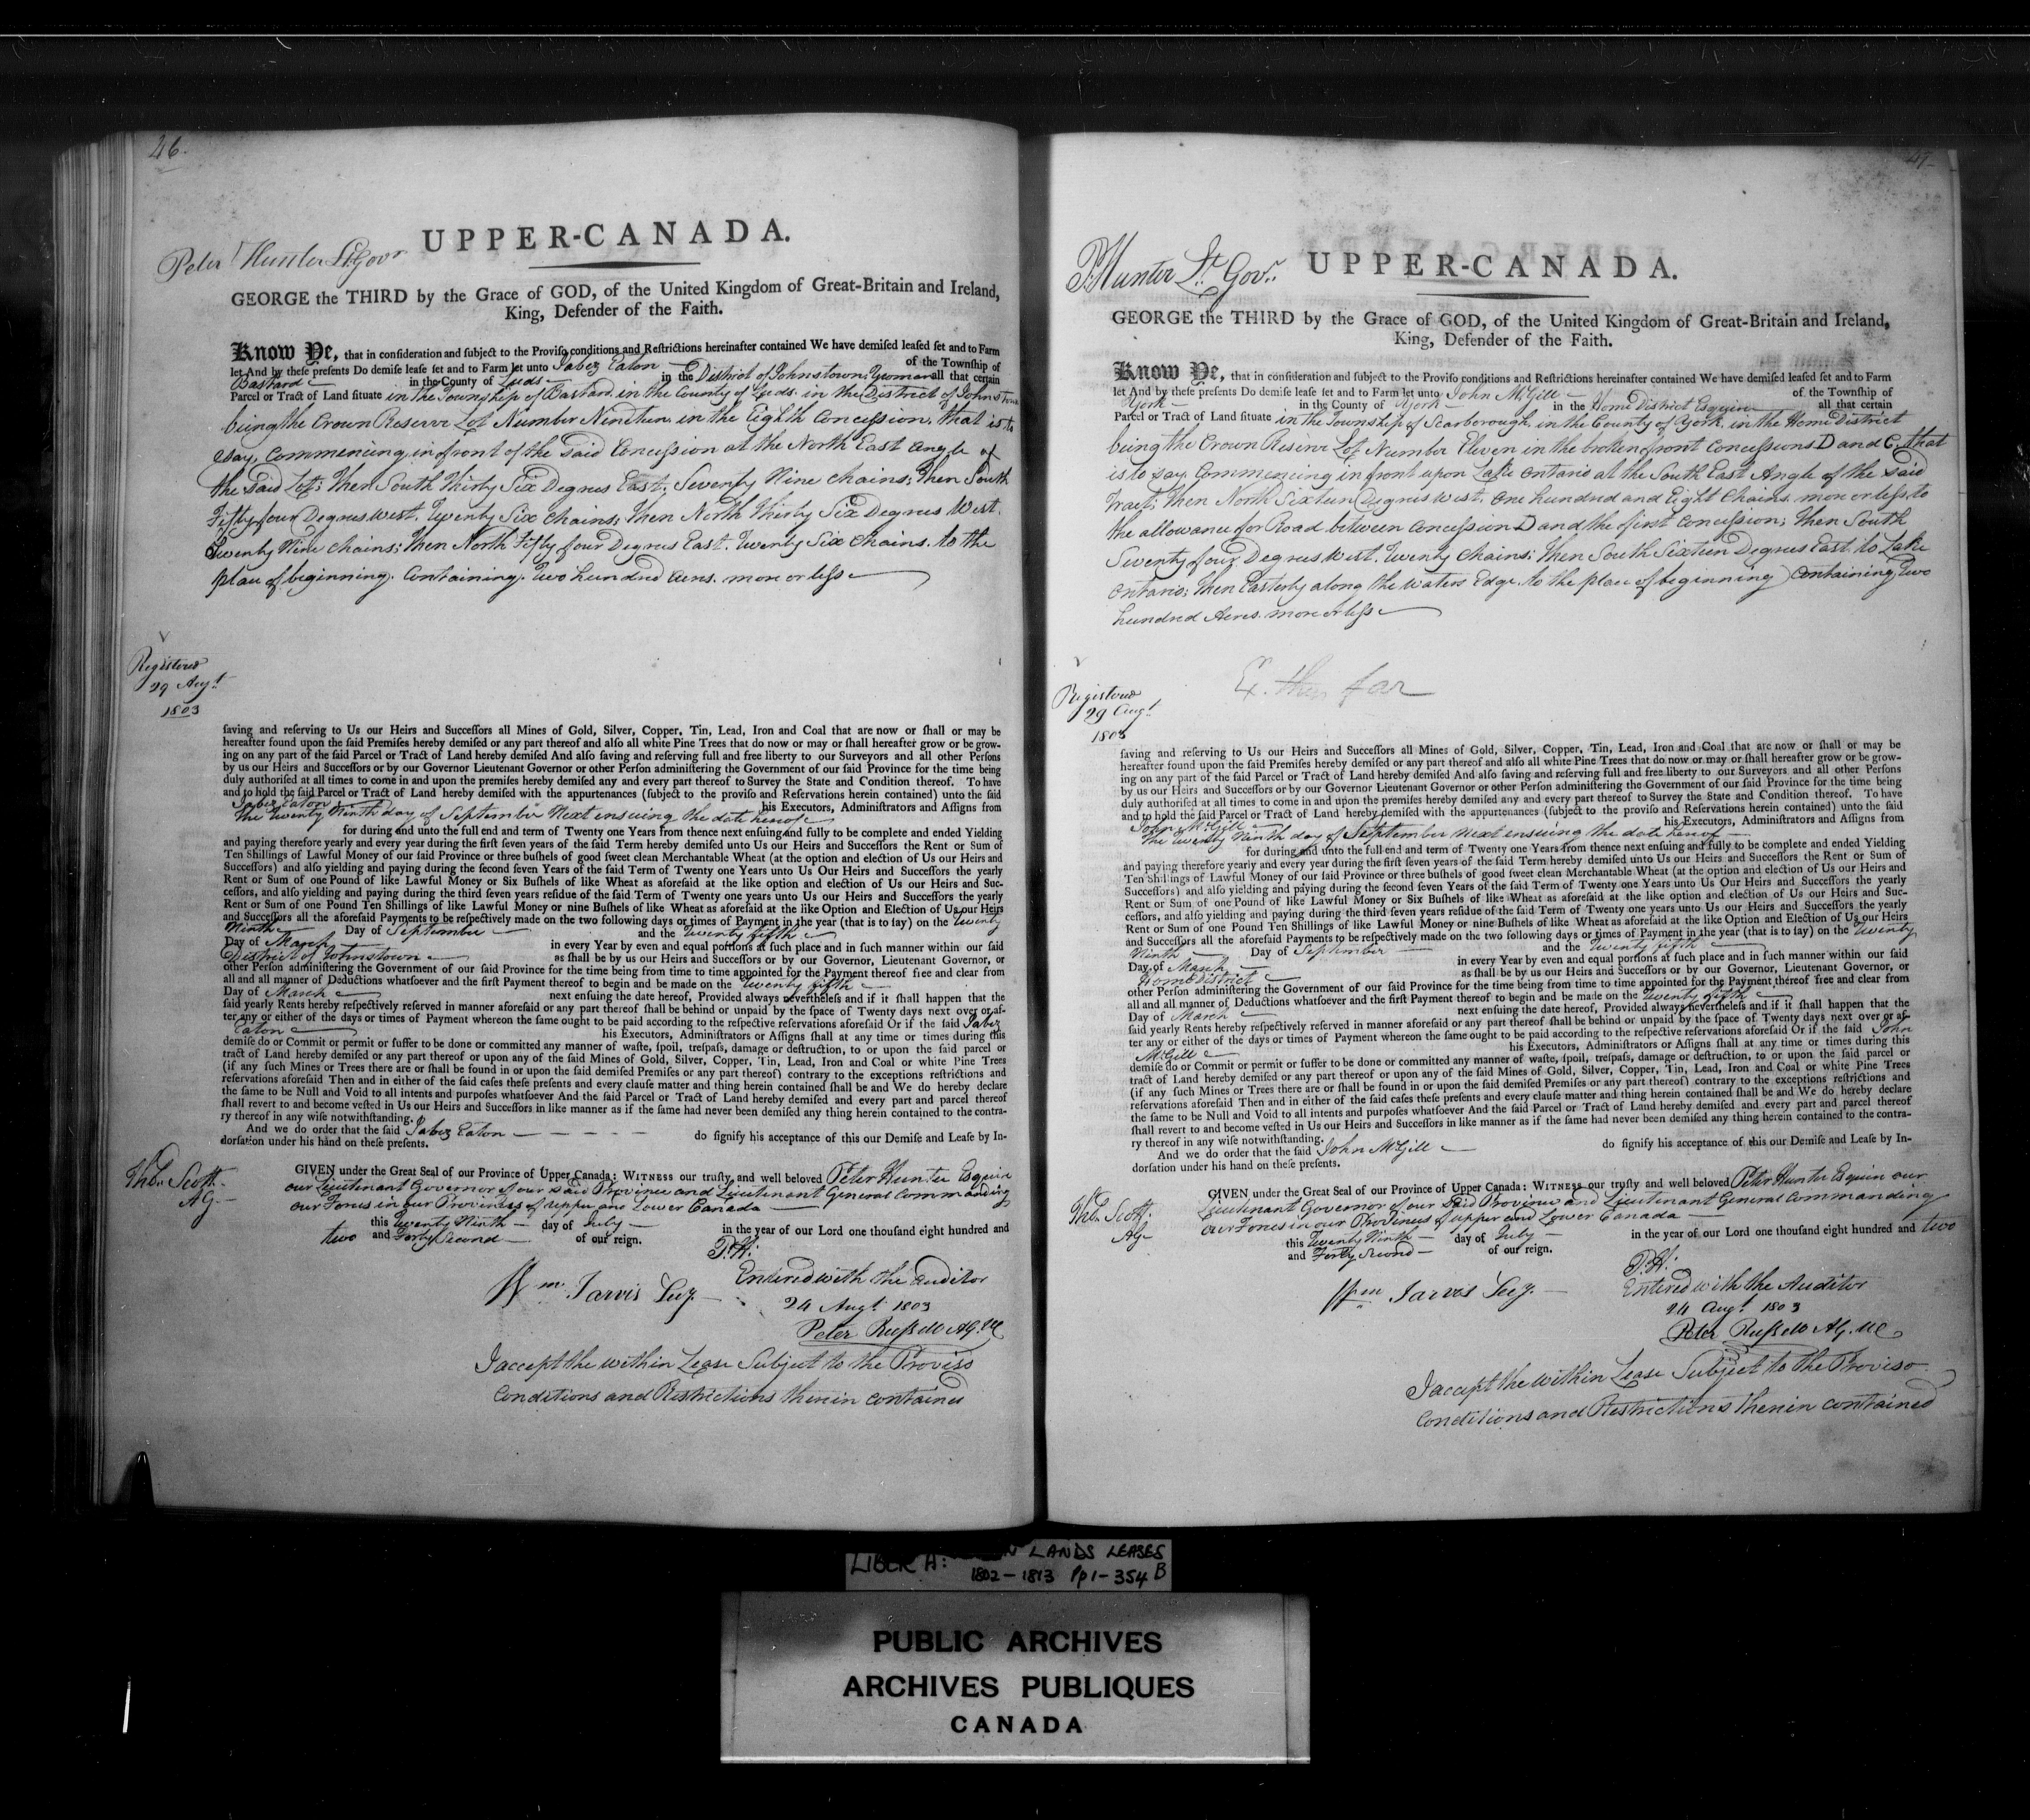 46.
UPPER-CANADA.
Peter Hunter Lt. Govr
GEORGE the THIRD by the Grace of GOD, of the United Kingdom of Great-Britain and Ireland,
King, Defender of the Faith.
Know Ye, that in consideration and subject to the Proviso conditions and Restrictions hereinafter contained We have demised leased set and to Farm
let And by these presents Do demise lease set and to Farm let unto Jabez Eaton of the Township of
Bastard in the County of Leeds in the District of Johnstown, Yeoman all that certain
Parcel or Tract of Land situate in the Township of Bastard in the County of Leeds in the District of Johnstown
being the Crown Reserve Lot Number Nineteen in the Eighth Concession, that is to
say, Commencing in front of the said Concession at the North East Angle of
the said Lot; then South thirty Six Degrees East, Seventy Nine chains; then South
Fifty four Degrees West, Twenty Six Chains; then North thirty Six Degrees West,
Seventy Nine Chains; then North Fifty four Degrees East, Twenty Six Chains, to the
place of beginning. Containing Two hundred Acres more or less
Registered
29 Augt.
1803
saving and reserving to Us our Heirs and Successors all Mines of Gold, Silver, Copper, Tin, Lead, Iron and Coal that are now or shall or may be
hereafter found upon the said Premises hereby demised or any part thereof and also all white Pine Trees that do now or may or shall hereafter grow or be grow-
ing on any part of the said Parcel or Tract of Land hereby demised And also saving and reserving full and free liberty to our Surveyors and all other Persons
by us our Heirs and Successors or by our Governor Lieutenant Governor or other Person administering the Government of our said Province for the time being
duly authorised at all times to come in and upon the premises hereby demised any and every part thereof to Survey the State and Condition thereof. To have
and to hold the said Parcel or Tract of Land hereby demised with the appurtenances (subject to the proviso and Reservations herein contained) unto the said
Jabez Eaton his Executors, Administrators and Assigns from
the Twenty Ninth day of September Next ensuing the date hereof
for during and unto the full end and term of Twenty one Years from thence next ensuing and fully to be complete and ended Yielding
and paying therefore yearly and every year during the first seven years of the said Term hereby demised unto Us our Heirs and Successors the Rent or Sum of
Ten Shillings of Lawful Money of our said Province or three bushels of good sweet clean Merchantable Wheat (at the option and election of Us our Heirs and
Successors) and also yielding and paying during the second seven Years of the said Term of Twenty one Years unto Us Our Heirs and Successors the yearly
Rent or Sum of one Pound of like Lawful Money or Six Bushels of like Wheat as aforesaid at the like option and election of Us our Heirs and Suc-
cessors, and also yielding and paying during the third seven years residue of the said Term of Twenty one years unto Us our Heirs and Successors the yearly
Rent or Sum of one Pound Ten Shillings of like Lawful Money or nine Bushels of like Wheat as aforesaid at the like Option and Election of Us our Heirs
and Successors all the aforesaid Payments to be respectively made on the two following days or times of Payment in the year (that is to say) on the Twenty
Ninth Day of September and the Twenty fifth
Day of March in every Year by even and equal portions at such place and in such manner within our said
District of Johnstown as shall be by us our Heirs and Successors or by our Governor, Lieutenant Governor, or
other Person administering the Government of our said Province for the time being from time to time appointed for the Payment thereof free and clear from
all and all manner of Deductions whatsoever and the first Payment thereof to begin and be made on the Twenty fifth
Day of March next ensuing the date hereof, Provided always nevertheless and if it shall happen that the
said yearly Rents hereby respectively reserved in manner aforesaid or any part thereof shall be behind or unpaid by the space of Twenty days next over or af-
ter any or either of the days or times of Payment whereon the same ought to be paid according to the respective reservations aforesaid Or if the said Jabez
Eaton his Executors, Administrators or Assigns shall at any time or times during this
demise do or Commit or permit or suffer to be done or committed any manner of waste, spoil, trespass, damage or destruction, to or upon the said parcel or
tract of Land hereby demised or any part thereof or upon any of the said Mines of Gold, Silver, Copper, Tin, Lead, Iron and Coal or white Pine Trees
(if any such Mines or Trees there are or shall be found in or upon the said demised Premises or any part thereof) contrary to the exceptions restrictions and
reservations aforesaid Then and in either of the said cases these presents and every clause matter and thing herein contained shall be and We do hereby declare
the same to be Null and Void to all intents and purposes whatsoever And the said Parcel or Tract of Land hereby demised and every part and parcel thereof
shall revert to and become vested in Us our Heirs and Successors in like manner as if the same had never been demised any thing herein contained to the contra-
ry thereof in any wise notwithstanding.
And we do order that the said Jabez Eaton do signify his acceptance of this our Demise and Lease by In-
dorsation under his hand on these presents.
Thos. Scott
AG
GIVEN under the Great Seal of our Province of Upper Canada: WITNESS our trusty and well beloved Peter Hunter Esquire
our Lieutenant Governor of our said Province and Lieutenant General Commanding
our Forces in our Provinces of upper and Lower Canada
this Twenty Ninth day of July in the year of our Lord one thousand eight hundred and
two and Forty Second of our reign.
P.H.
Wm Jarvis Secy.
Entered with the Auditor
24 Augt 1803
Peter Russell AG. UC
I accept the within Lease Subject to the Proviso
Conditions and Restrictions therein contained
47
P. Hunter Lt. Govr.
UPPER-CANADA.
GEORGE the THIRD by the Grace of GOD, of the United Kingdom of Great-Britain and Ireland,
King, Defender of the Faith.
Know Ye, that in consideration and subject to the Proviso conditions and Restrictions hereinafter contained We have demised leased set and to Farm
let And by these presents Do demise lease set and to Farm let unto John McGill of the Township of
York in the County of York in the Home District Esquire all that certain
Parcel or Tract of Land situate in the Township of Scarborough in the County of York in the Home District
being the Crown Reserve Lot Number Eleven in the broken front Concessions D and C, that
is to say, Commencing in front upon Lake Ontario at the South East Angle of the said
Tract; then North Sixteen Degrees West, One hundred and Eight Chains more or less to
the allowance for Road between Concession D and the first Concession; then South
Seventy four Degrees West, Twenty Chains; then South Sixteen Degrees East to Lake
Ontario; then Easterly along the Waters Edge to the place of beginning Containing Two
hundred Acres more or less
Ex. thus far
Registered
29 Augt.
1803
saving and reserving to Us our Heirs and Successors all Mines of Gold, Silver, Copper, Tin, Lead, Iron and Coal that are now or shall or may be
hereafter found upon the said Premises hereby demised or any part thereof and also all white Pine Trees that do now or may or shall hereafter grow or be grow-
ing on any part of the said Parcel or Tract of Land hereby demised And also saving and reserving full and free liberty to our Surveyors and all other Persons
by us our Heirs and Successors or by our Governor Lieutenant Governor or other Person administering the Government of our said Province for the time being
duly authorised at all times to come in and upon the premises hereby demised any and every part thereof to Survey the State and Condition thereof. To have
and to hold the said Parcel or Tract of Land hereby demised with the appurtenances (subject to the proviso and Reservations herein contained) unto the said
John McGill his Executors, Administrators and Assigns from
the Twenty Ninth day of September next ensuing the date hereof
for during and unto the full end and term of Twenty one Years from thence next ensuing and fully to be complete and ended Yielding
and paying therefore yearly and every year during the first seven years of the said Term hereby demised unto Us our Heirs and Successors the Rent or Sum of
Ten Shillings of Lawful Money of our said Province or three bushels of good sweet clean Merchantable Wheat (at the option and election of Us our Heirs and
Successors) and also yielding and paying during the second seven Years of the said Term of Twenty one Years unto Us Our Heirs and Successors the yearly
Rent or Sum of one Pound of like Lawful Money or Six Bushels of like Wheat as aforesaid at the like option and election of Us our Heirs and Suc-
cessors, and also yielding and paying during the third seven years residue of the said Term of Twenty one years unto Us our Heirs and Successors the yearly
Rent or Sum of one Pound Ten Shillings of like Lawful Money or nine Bushels of like Wheat as aforesaid at the like Option and Election of Us our Heirs
and Successors all the aforesaid Payments to be respectively made on the two following days or times of Payment in the year (that is to say) on the Twenty
Ninth Day of September and the Twenty fifth
Day of March in every Year by even and equal portions at such place and in such manner within our said
Home District as shall be by us our Heirs and Successors or by our Governor, Lieutenant Governor, or
other Person administering the Government of our said Province for the time being from time to time appointed for the Payment thereof free and clear from
all and all manner of Deductions whatsoever and the first Payment thereof to begin and be made on the Twenty fifth
Day of March next ensuing the date hereof, Provided always nevertheless and if it shall happen that the
said yearly Rents hereby respectively reserved in manner aforesaid or any part thereof shall be behind or unpaid by the space of Twenty days next over or af-
ter any or either of the days or times of Payment whereon the same ought to be paid according to the respective reservations aforesaid Or if the said John
McGill his Executors, Administrators or Assigns shall at any time or times during this
demise do or Commit or permit or suffer to be done or committed any manner of waste, spoil, trespass, damage or destruction, to or upon the said parcel or
tract of Land hereby demised or any part thereof or upon any of the said Mines of Gold, Silver, Copper, Tin, Lead, Iron and Coal or white Pine Trees
(if any such Mines or Trees there are or shall be found in or upon the said demised Premises or any part thereof) contrary to the exceptions restrictions and
reservations aforesaid Then and in either of the said cases these presents and every clause matter and thing herein contained shall be and We do hereby declare
the same to be Null and Void to all intents and purposes whatsoever And the said Parcel or Tract of Land hereby demised and every part and parcel thereof
shall revert to and become vested in Us our Heirs and Successors in like manner as if the same had never been demised any thing herein contained to the contra-
ry thereof in any wise notwithstanding.
And we do order that the said John McGill do signify his acceptance of this our Demise and Lease by In-
dorsation under his hand on these presents.
Thos. Scott
AG
GIVEN under the Great Seal of our Province of Upper Canada: WITNESS our trusty and well beloved Peter Hunter Esquire our
Lieutenant Governor of our Said Province and Lieutenant General Commanding
our Forces in our Provinces of upper and Lower Canada
this Twenty Ninth day of July in the year of our Lord one thousand eight hundred and two
and Forty Second of our reign.
P.H.
Wm Jarvis Secy.
Entered with the Auditor
24 Augt 1803
Peter Russell AG. UC
I accept the within Lease Subject to the Proviso
Conditions and Restrictions therein contained
LIBER A: LANDS LEASES
1802-1813 Pp 1-354 B
PUBLIC ARCHIVES
ARCHIVES PUBLIQUES
CANADA